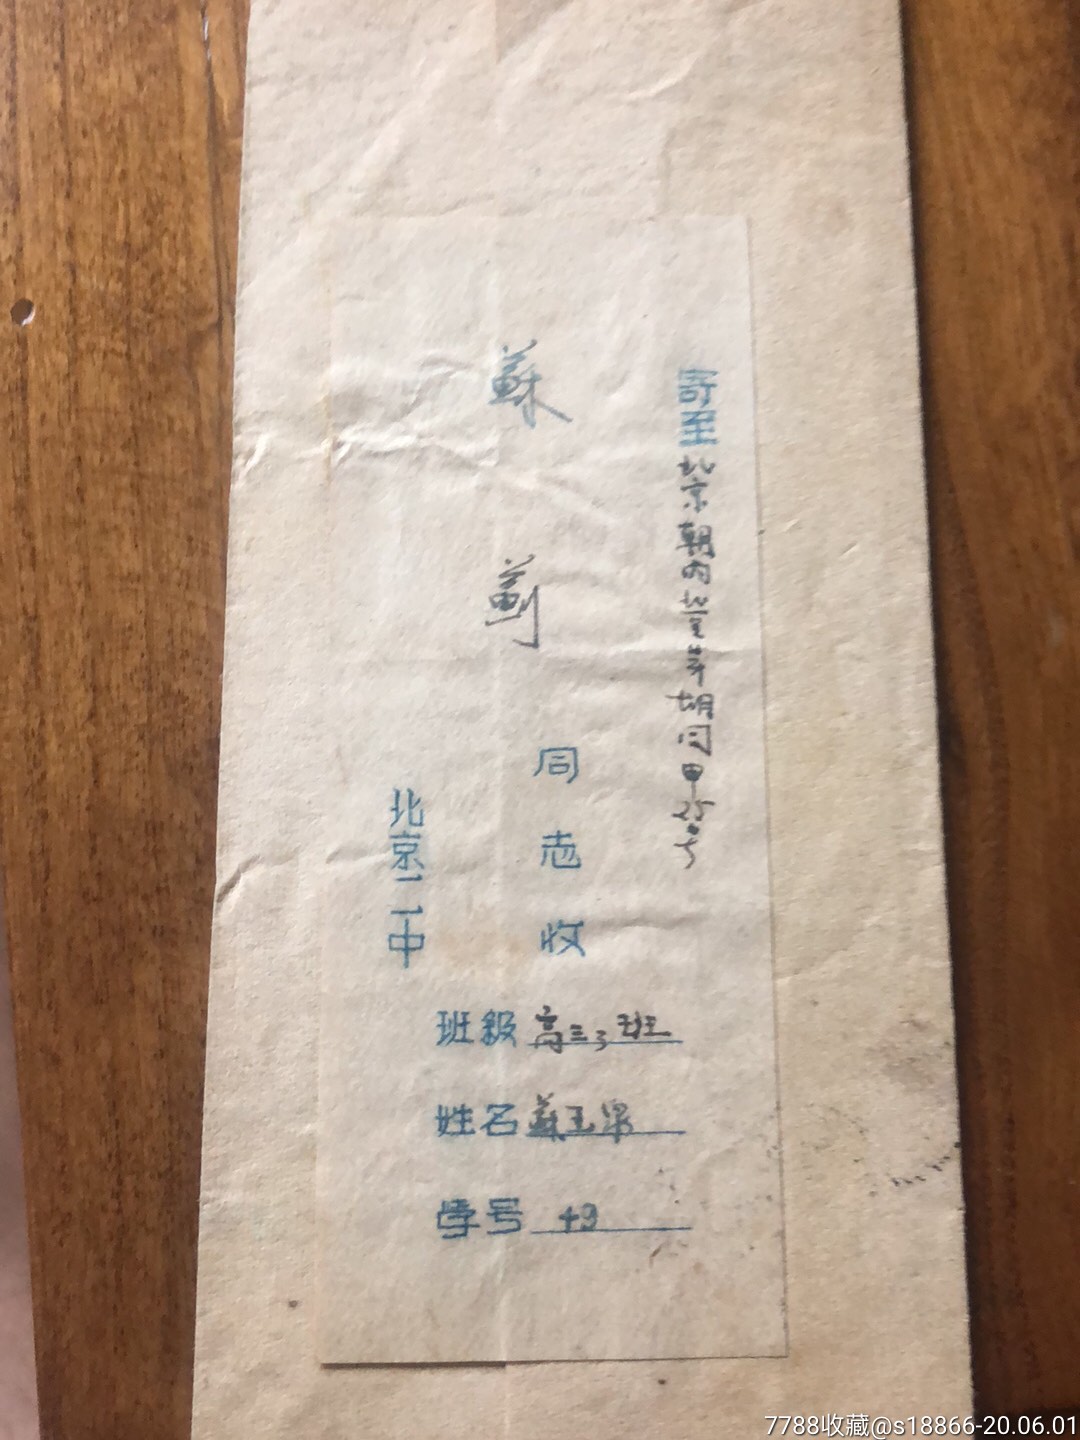 寄至北京朝内北豆芽胡同甲25号
蘇 蓟 同志收
北京二中
班級 高三3班
姓名 蘇玉泉
学号 49
7788收藏@s18866-20.06.01